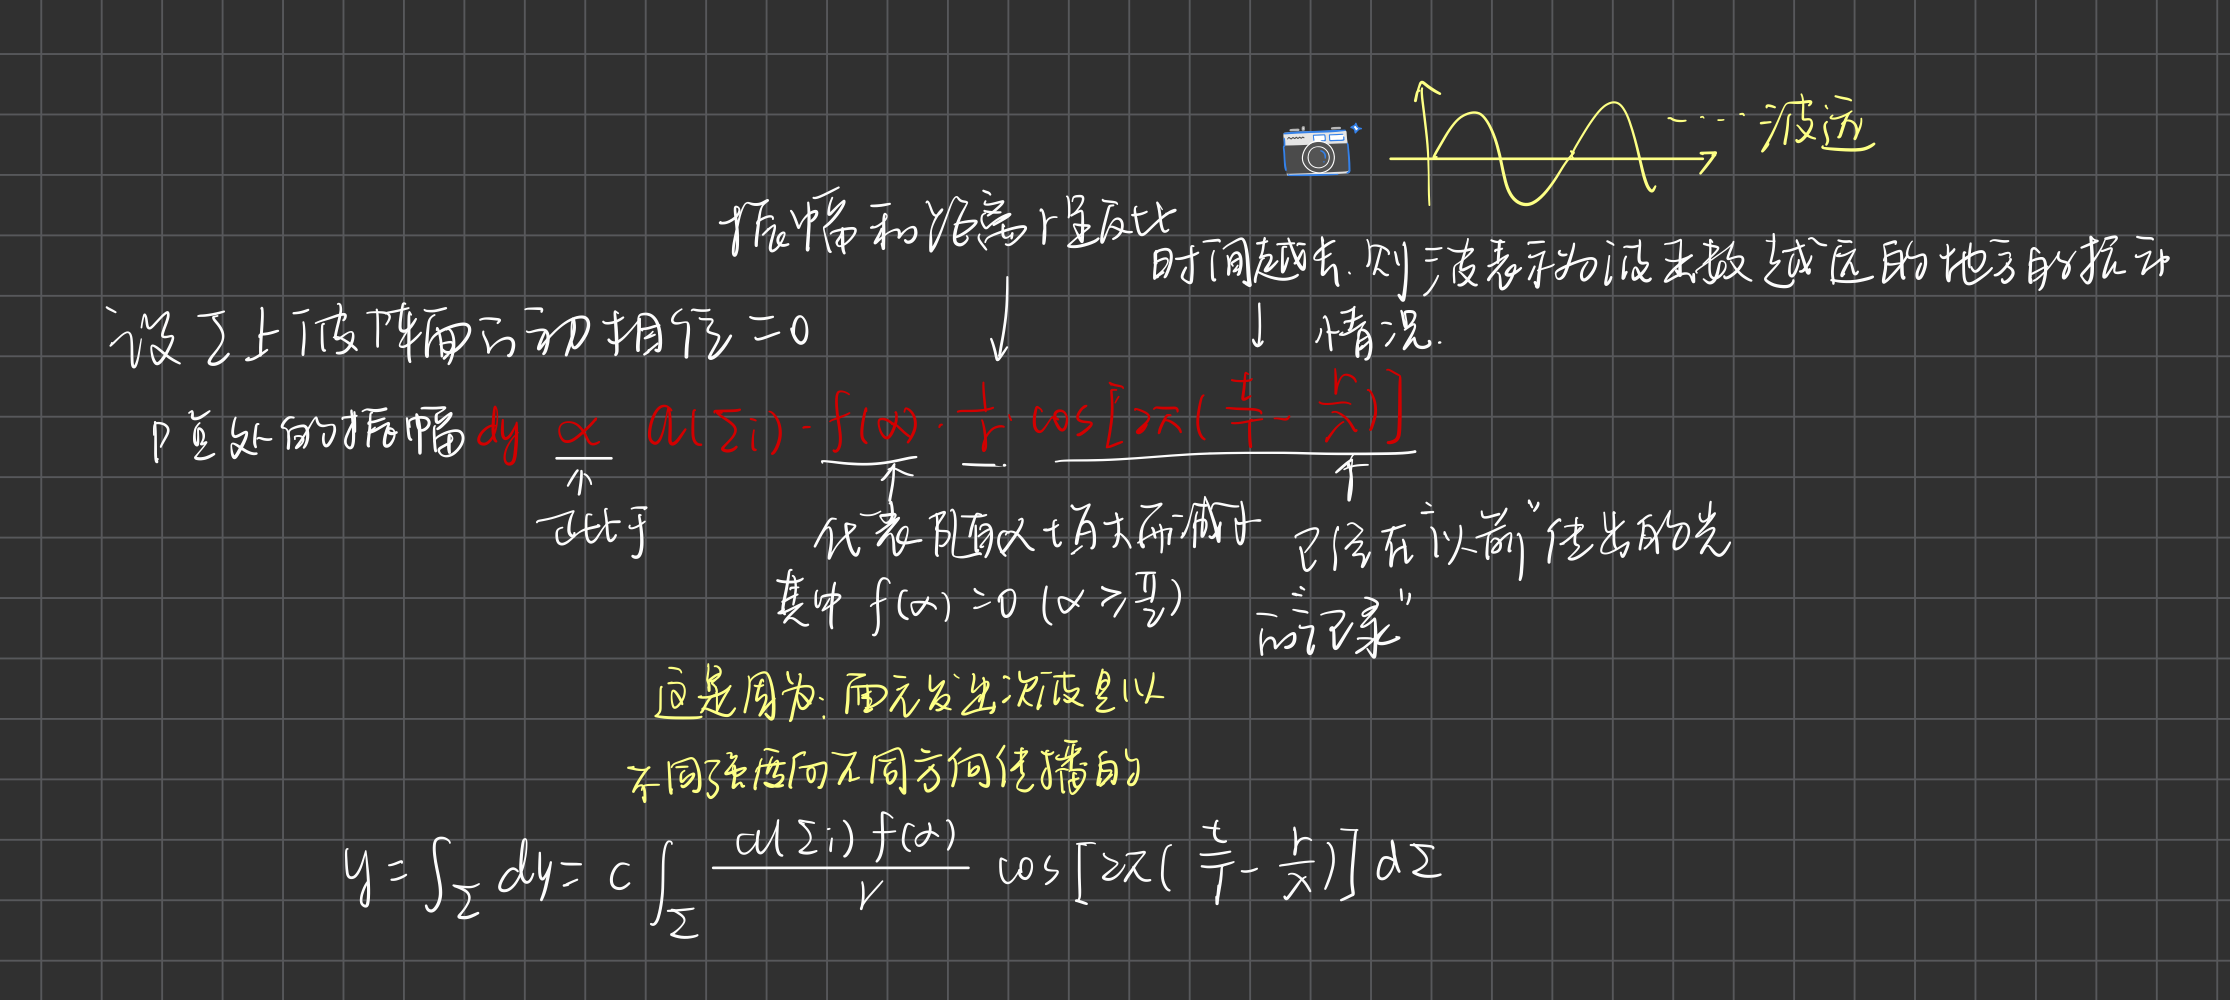 波远
振幅和距离r呈反比
时间越长.则波表示为波函数越远的地方的振动
情况.
设Σ上波阵面的初相位=0
P点处的振幅 dy ∝ a(Σi)·f(α)·1/r·cos[2π(t/T - r/λ)]
正比于
代表随α增大而减少
已经在"以前"传出的光
其中 f(α)=0 (α≥π/2)
的"记录"
这是因为:面元发出次波是以
不同强度向不同方向传播的
y=∫_Σ dy= c∫_Σ a(Σi)f(α)/r cos[2π(t/T - r/λ)]dΣ